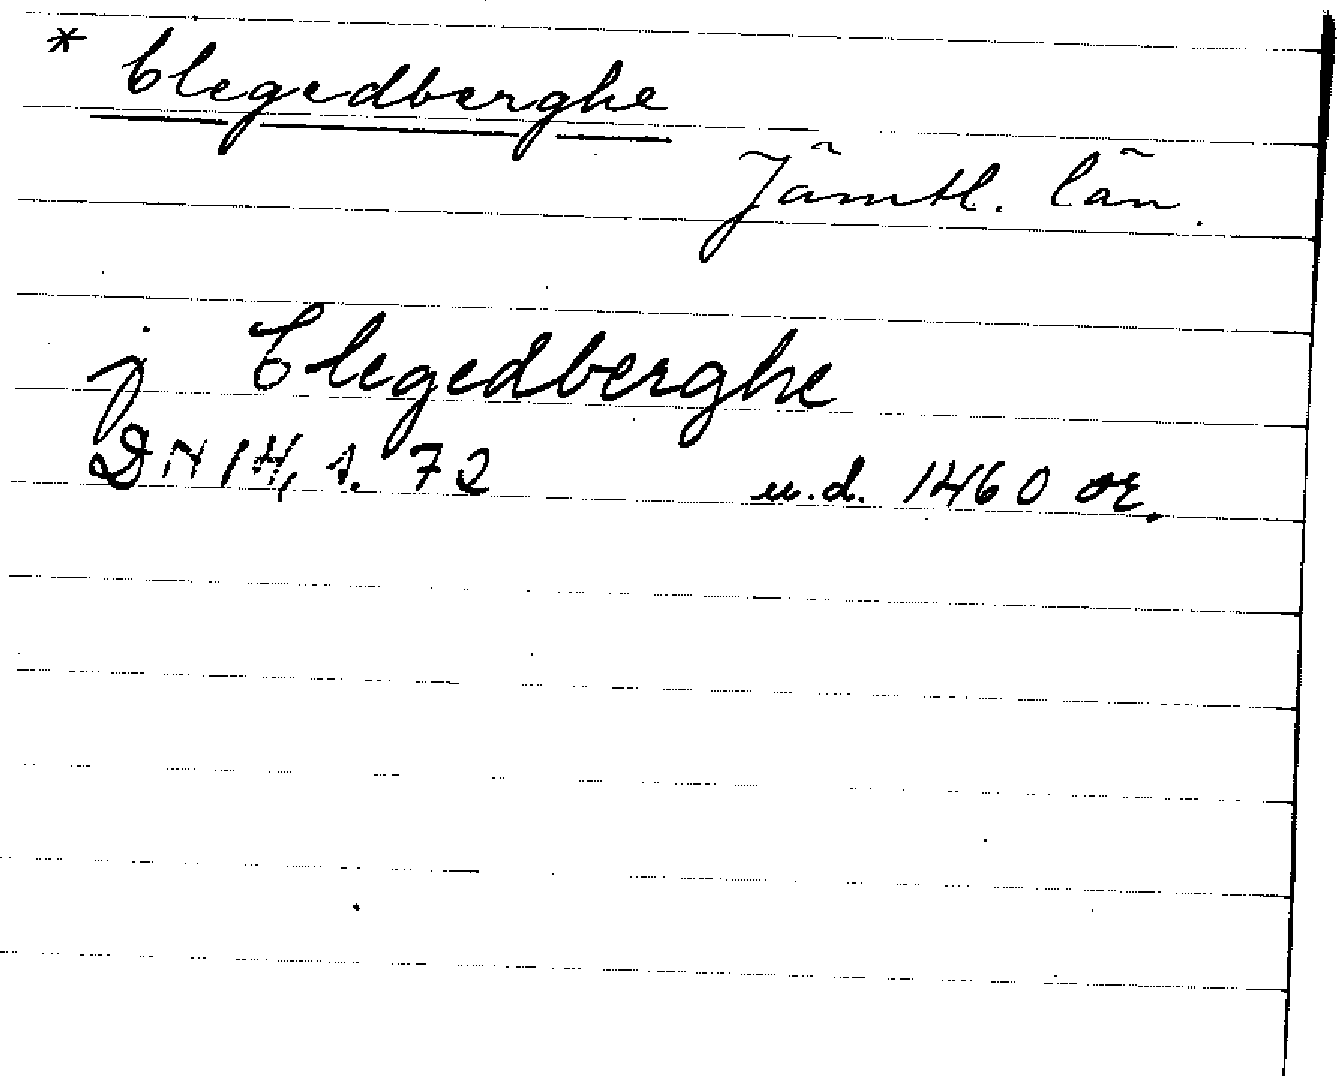 * Clegedberghe
Jämtl. län.
j Clegedberghe
DN 14, s. 72 u.d. 1460 or.